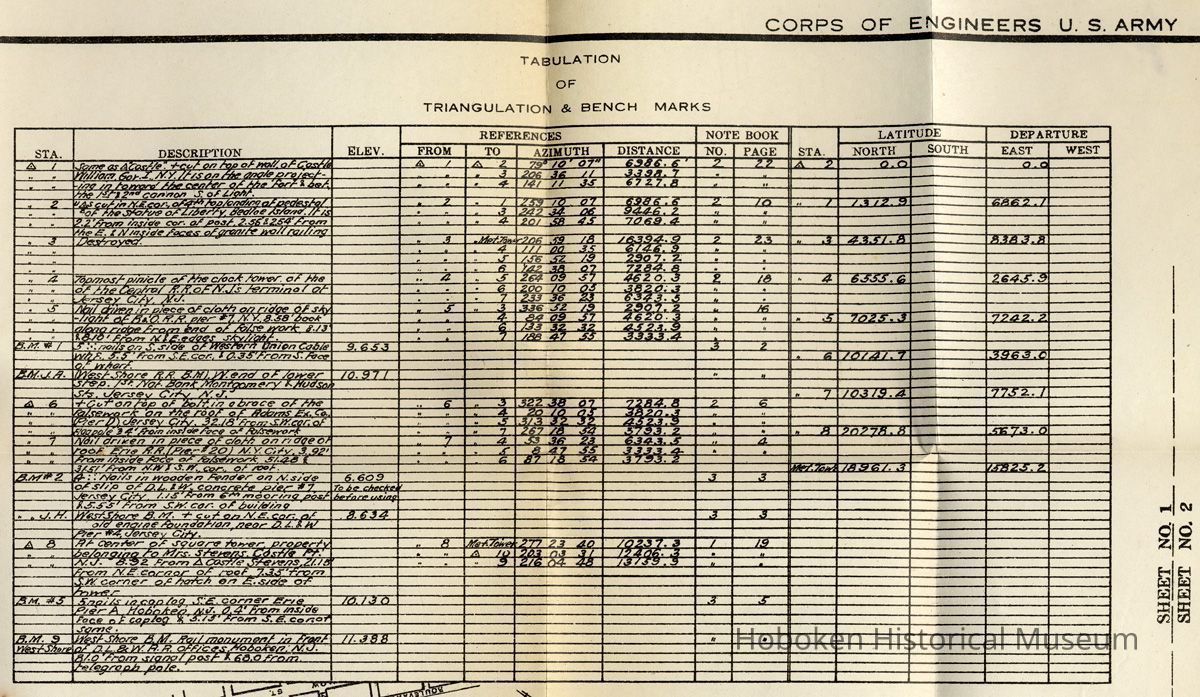 CORPS OF ENGINEERS U. S. ARMY
TABULATION
OF
TRIANGULATION & BENCH MARKS
REFERENCES NOTE BOOK LATITUDE DEPARTURE
STA. DESCRIPTION ELEV. FROM TO AZIMUTH DISTANCE NO. PAGE STA. NORTH SOUTH EAST WEST
△ 1 Same as △"Castle" + cut on top of wall of Castle △ 1 △ 2 79° 10' 07" 6986.6' 2 22 △ 2 0.0 0.0
William, Gov. I. N.Y. It is on the angle project- " 3 206 36 11 3398.7 " "
-ing in toward the center of the Fort & bet. " 4 141 11 35 6727.8 " "
the 1st & 2nd cannon S. of Light.
" 2 cut in N.E. cor. of 4th top landing of pedestal " 2 " 1 259 10 07 6986.6 2 10 " 1 1312.9 6862.1
of the Statue of Liberty, Bedloe Island. It is " 3 242 34 06 9446.2 " "
2.2' from inside cor. of post, 2.56 & 2.54' from " 4 201 58 45 7069.4 " "
the E. & N inside faces of granite wall railing
" 3 Destroyed. " 3 Met. Tower 206 59 18 16394.9 2 23 " 3 4351.8 8383.8
" 4 111 00 35 6146.9 " "
" 5 156 52 19 2907.2 " "
" 6 142 38 07 7284.8 " "
" 4 Topmost pinicle of the clock tower of the " 4 " 5 264 09 57 4620.3 2 18 " 4 6555.6 2645.9
of the Central R.R. of N.J's terminal at " 6 200 10 05 3820.3 " "
Jersey City, N.J. " 7 233 36 23 6343.5 " "
" 5 Nail driven in piece of cloth on ridge of sky " 5 " 3 336 52 19 2907.2 " 16
-light of B.& O. R.R. pier #7, N.Y. 8.38' back " 4 84 09 57 4620.3 " " " 5 7025.3 7242.2
along ridge from end of false work & 8.13' " 6 133 32 32 4523.9 " "
& 8.10' from N & E edges skylight. " 7 188 47 55 3333.4 " "
B.M. #1 5 ::nails on S. side of Western Union Cable 9.653 3 2
Whf. 5.5' from S.E. cor. & 0.35' from S. face " 6 10141.7 3963.0
of wharf.
B.M. J.A. (West Shore R.R. B.M.) W. end of lower 10.971 " "
step, 1st. Nat. Bank, Montgomery & Hudson
Sts. Jersey City N.J. " 7 10319.4 7752.1
△ 6 + Cut on top of bolt in a brace of the " 6 " 3 322 38 07 7284.8 2 6
falsework on the roof of Adams Ex. Co. " 4 20 10 05 3820.3 " "
(Pier D) Jersey City. 32.18' from S.W. cor. of " 5 313 32 32 4523.9 " "
flagpole & 4' from inside face of falsework " 7 267 18 54 3793.2 " " " 8 20278.8 5673.0
" 7 Nail driven in piece of cloth on ridge of " 7 " 4 53 36 23 6343.5 " 4
roof Erie R.R. (Pier #20) N.Y. City. 3.92' " 5 8 47 55 3333.4 " "
from inside face of falsework 31.48 & " 6 87 18 54 3793.2 " "
31.51' from N.W & S.W. cor. of roof. Met. Tower 18961.3 15825.2
B.M #2 4:: Nails in wooden fender on N. side 6.609 3 3
of slip of D.L.& W. concrete pier #7, To be checked
Jersey City 1.15' from 6th mooring post before using
& 5.55' from S.W. cor. of building
" " J.H. West Shore B.M. + cut on N.E. cor. of 8.634 3 3
old engine foundation, near D.L. & W
Pier #4, Jersey City.
△ 8 At center of square tower, property " 8 Met. Tower 277 23 40 10237.3 1 19
belonging to Mrs. Stevens, Castle Pt. △ 10 203 03 31 12406.3 " "
N.J. 8.92 from △ Castle Stevens, 21.18 " 9 216 04 48 13159.9 " "
from N.E. corner of roof 7.35' from
S.W. corner of hatch on E. side of
tower
B.M. #5 5 nails in cap log, S.E. corner Erie 10.130 3 5
Pier A, Hoboken, N.J. 0.4' from inside
face of caplog & 5.15' from S.E. cor. of
same.
B.M. 9 West Shore B.M. Rail monument in front 11.388 "
West Shore of D.L. & W. R.R. offices, Hoboken, N.J.
81.0 from signal post & 68.0 from
telegraph pole.
SHEET NO. 1
SHEET NO. 2
Hoboken Historical Museum